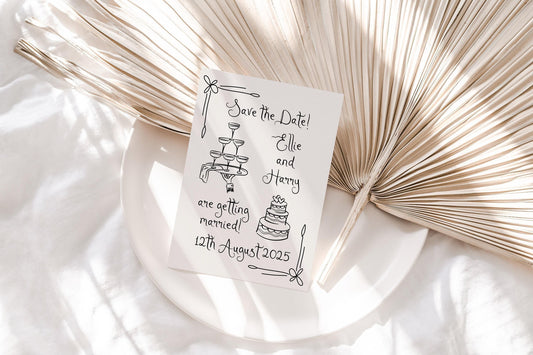 Save the Date!
Ellie
and
Harry
are getting
married!
12th August 2025